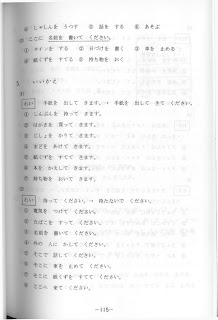 ④ しゃしんを うつす ⑤ 話を する ⑥ あそぶ
② ここに 名前を 書いて ください。
① サインを する ② 日づけを 書く ③ 車を 止める
④ 紙くずを すてる ⑤ 持ち物を おく
5 いいかえ
れい 手紙を 出して きます。→ 手紙を 出して きて ください。
① しんぶんを 持って きます。
② はがきを 買って きます。
③ じしょを かりて きます。
④ まどを あけて きます。
⑤ 紙くずを すてて きます。
⑥ 本を かえして きます。
⑦ 持ち物を おいて きます。
②
れい 待って ください。→ 待たないで ください。
① 電気を つけて ください。
② たばこを すって ください。
③ 名前を 書いて ください。
④ 外の 人に かして ください。
⑤ そこで 話して ください。
⑥ そこに 車を 止めて ください。
⑦ そこに 紙くずを すてて ください。
⑧ ここへ 来て ください。
—115—